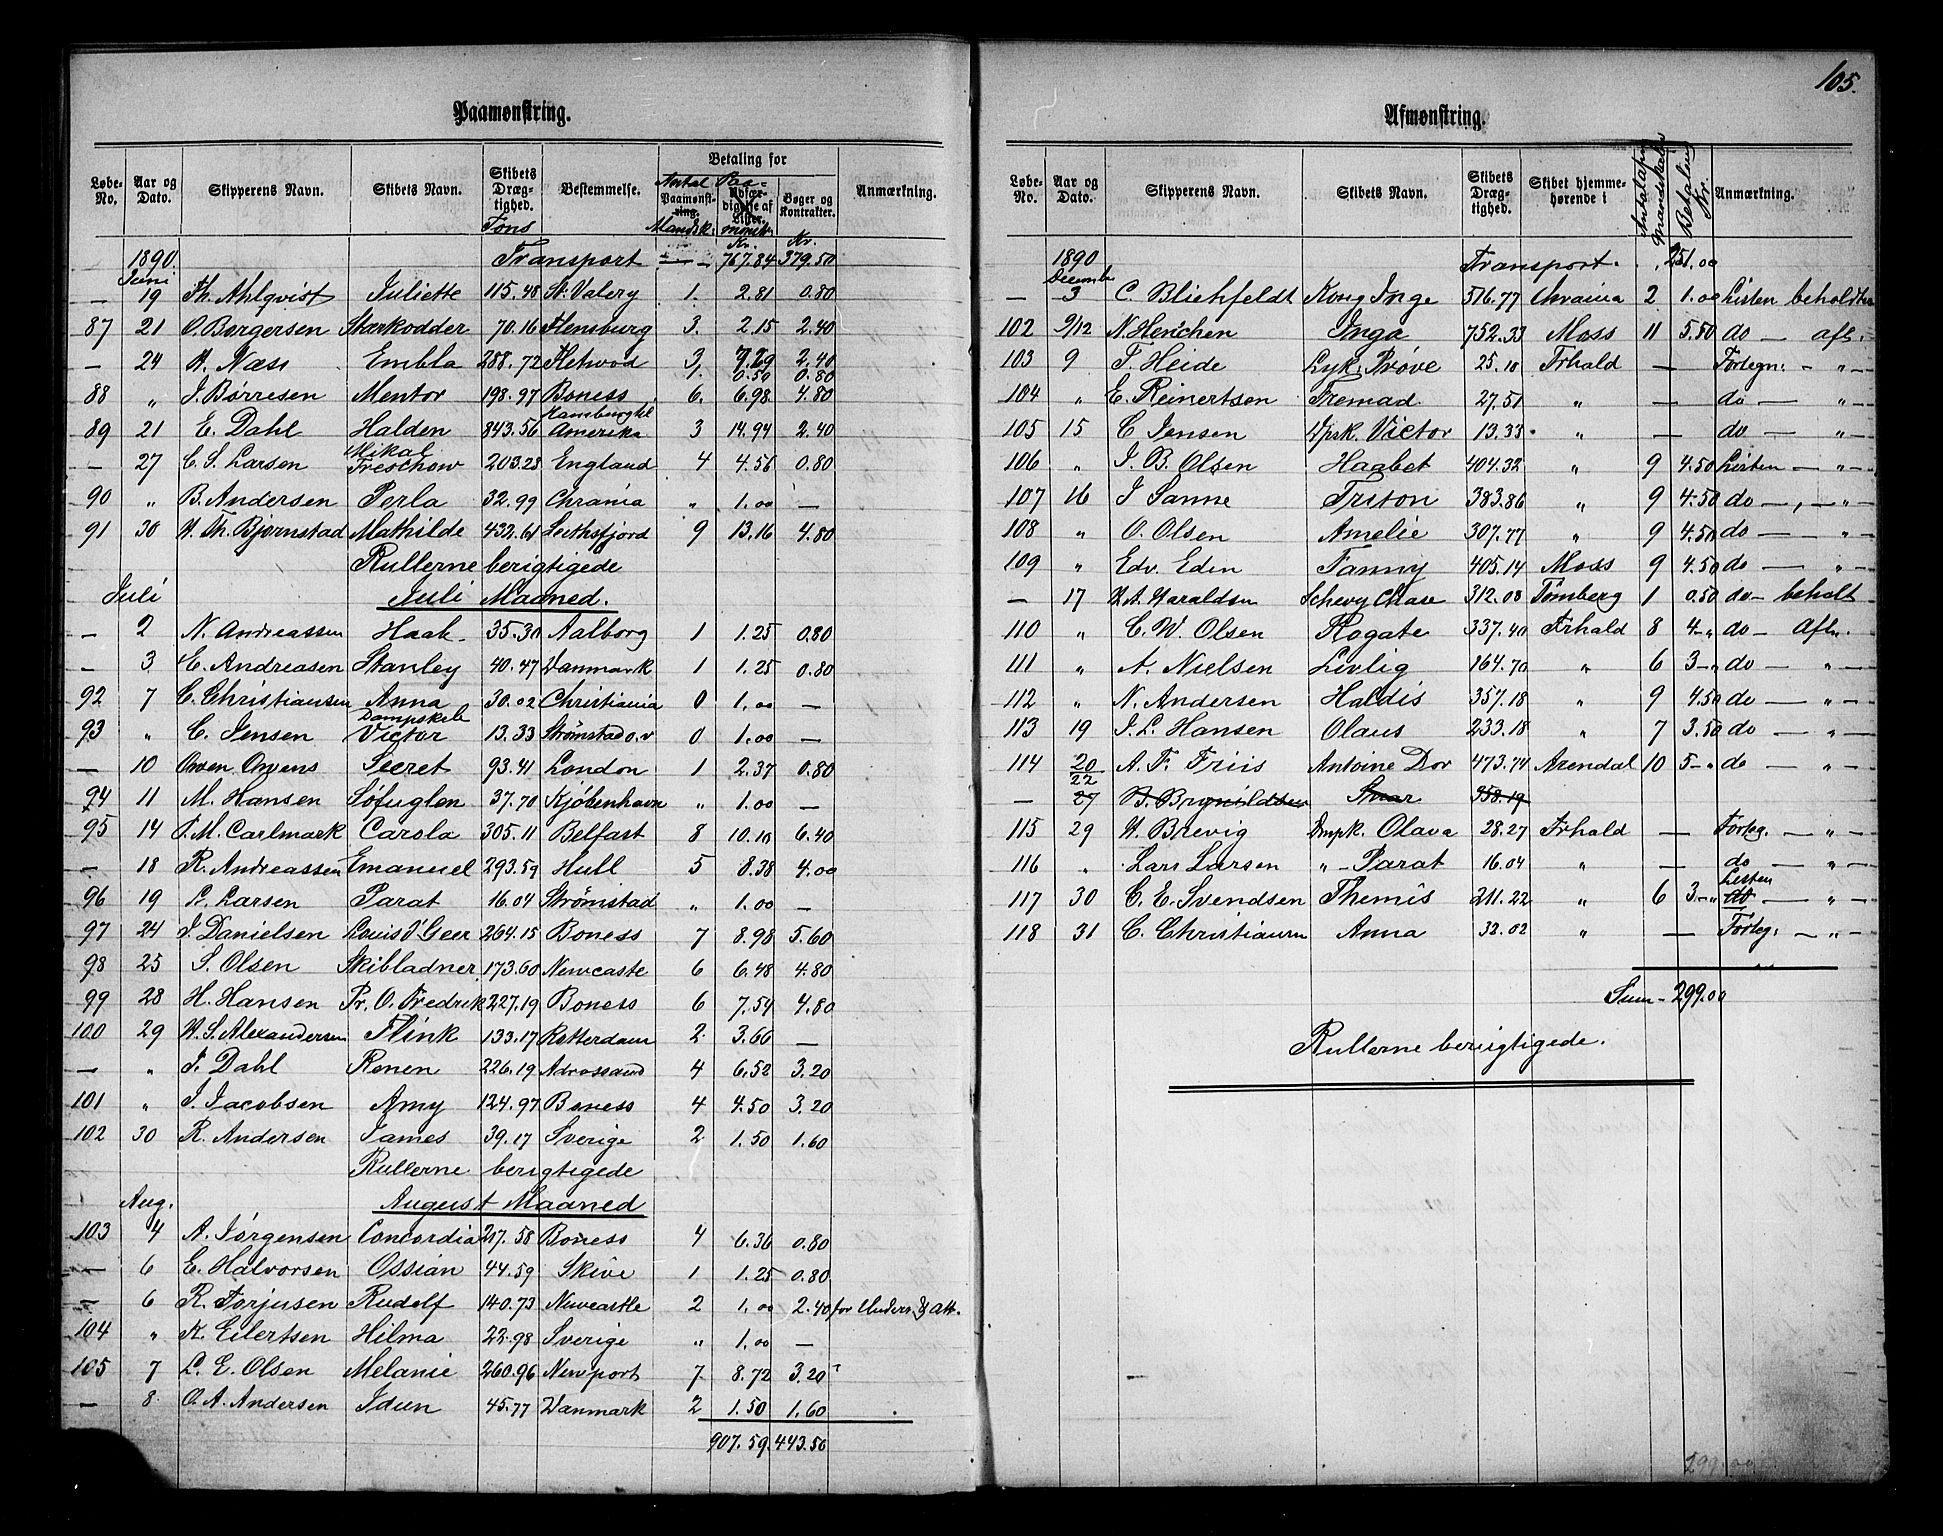 105.
Paamønstring.
Løbe-No. | Aar og Dato. | Skipperens Navn. | Skibets Navn. | Skibets Dræg-tighed. Tons | Bestemmelse. | Betaling for | Antal Paamønst-ring. Mandsk. | Paa- Udfær-digelse af Lister. mønstr. Kr. | Bøger og Kontrakter. Kr. | Anmærkning.
1890 Transport — 767.84 379.50
Juni
— 19 Th. Ahlqvist Juliette 115.48 St. Valery 1. 2.81 0.80
87 21 O. Borgersen Starkodder 70.16 Flensburg 3. 2.15 2.40
— 24 H. Næss Embla 288.72 Fletwod 3, 7.29 2.40
1. 0.50 0.80
88 " J. Børresen Mentor 198.97 Boness 6. 6.98 4.80
89 21 E. Dahl Halden 843.56 Hamburg til Amerika 3 14.94 2.40
— 27 C. S. Larsen Mikal Treschow 203.28 England 4 4.56 0.80
90 " B. Andersen Perla 32.99 Chrania " 1.00 —
91 30 H. Th. Bjørnstad Mathilde 432.61 Leithsfjord 9 13.16 4.80
Rullerne berigtigede
Juli Juli Maaned.
— 2 N. Andreassen Haab 35.30 Aalborg 1 1.25 0.80
— 3 E. Andreasen Stanley 40.47 Danmark 1 1.25 0.80
92 7 C. Christiansen Anna 30.02 Christiania 0 1.00 —
93 " C. Jensen Dampskib Victor 13.33 Strømstad o.v 0 1.00 —
— 10 Owen Owens Secret 93.41 London 1 2.37 0.80
94 11 M. Hansen Søfuglen 37.70 Kjøbenhavn " 1.00 —
95 14 T. M. Carlmark Carola 305.11 Belfast 8 10.10 6.40
— 18 R. Andreassen Emanuel 293.59 Hull 5 8.38 4.00
96 19 L. Larsen Parat 16.04 Strømstad " 1.00 —
97 24 J. Danielsen Louis d'Geer 264.15 Boness 7 8.98 5.60
98 25 S. Olsen Skibladner 173.60 Newcaste 6 6.48 4.80
99 28 H. Hansen Pr. O. Fredrik 227.19 Boness 6 7.54 4.80
100 29 H. S. Alexandersen Flink 133.17 Rotterdam 2 3.66 —
— " J. Dahl Renen 226.19 Adrossand 4 6.52 3.20
101 " J. Jacobsen Amy 124.97 Boness 4 4.50 3.20
102 30 R. Andersen James 39.17 Sverige 2 1.50 1.60
Rullerne berigtigede
Aug. August Maaned
103 4 A. Jørgensen Concordia 217.58 Boness 4 6.36 0.80
— 6 E. Halvorsen Ossian 44.59 Skive 1 1.25 0.80
— 6 R. Torjusen Rudolf 140.73 Newcastle 2 1.00 2.40 for Unders. & Att.
104 " K. Eilertsen Hilma 22.98 Sverige " 1.00 —
105 7 L. E. Olsen Melanie 260.96 Newport 7 8.72 3.20
— 8 O. A. Andersen Idun 45.77 Danmark 2 1.50 1.60
907.59 443.50
Afmønstring.
Løbe-No. | Aar og Dato. | Skipperens Navn. | Skibets Navn. | Skibets Dræg-tighed. | Skibet hjemme-hørende i | Antal afm. Mandskab | Betaling Kr. | Anmærkning.
1890 Transport. 251.00
Decembr
— 3 C. Bliehfeldt Kong Inge 516.77 Chrania 2 1.00 Listen beholdtes
102 9/12 N. Henchen Inga 752.33 Moss 11 5.50 do — afl.
103 9 T. Heide Lyk. Prøve 25.10 Frhald — Fortegn. — " —
104 " E. Reinertsen Fremad 27.51 " — do — " —
105 15 C Jensen Dpsk. Victor 13.33 " — do — " —
106 " J. B. Olsen Haabet 404.32 " 9 4.50 Listen — " —
107 16 J Sanne Triton 383.86 " 9 4.50 do — " —
108 " O. Olsen Amelie 307.77 " 9 4.50 do — " —
109 " Edv. Eden Fanny 405.14 Moss 9 4.50 do — " —
— 17 H. A. Haraldsen Schevy Chase 312.08 Tønsberg 1 0.50 do — beholt
110 " C. W. Olsen Rogate 337.40 Frhald 8 4-" do — Afl.
111 " A. Nielsen Livlig 164.70 " 6 3-" do — " —
112 " N. Andersen Haldis 357.18 " 9 4.50 do — " —
113 19 J. L. Hansen Olaus 233.18 " 7 3.50 do — " —
114 20/22 A. F. Friis Antoine Dor 473.74 Arendal 10 5-" do — " —
— 27 B. Brynildsen Snar 958.19
115 29 H. Brevig Dmpk. Olava 28.27 Frhald — Forteg. — " —
116 " Lars Larsen " — Parat 16.04 " — do — " —
117 30 C. E. Svendsen Themis 211.22 " 6 3-" Listen do — " —
118 31 C. Christiansen Anna 32.02 " — Forteg. — " —
Sum — 299.00
Rullerne berigtigede.
299.00